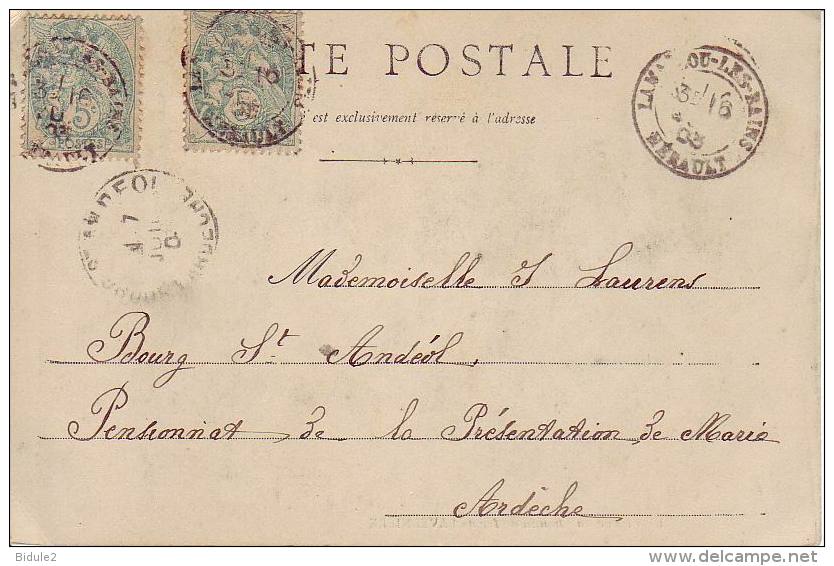 TE POSTALE
est exclusivement réservé à l'adresse
LAMALOU-LES-BAINS
16
HÉRAULT
5
POSTES
5
HÉRAULT
Mademoiselle J Laurens
Bourg St Andéol,
Pensionnat de la Présentation de Marie
Ardèche
Bidule2
www.delcampe.net